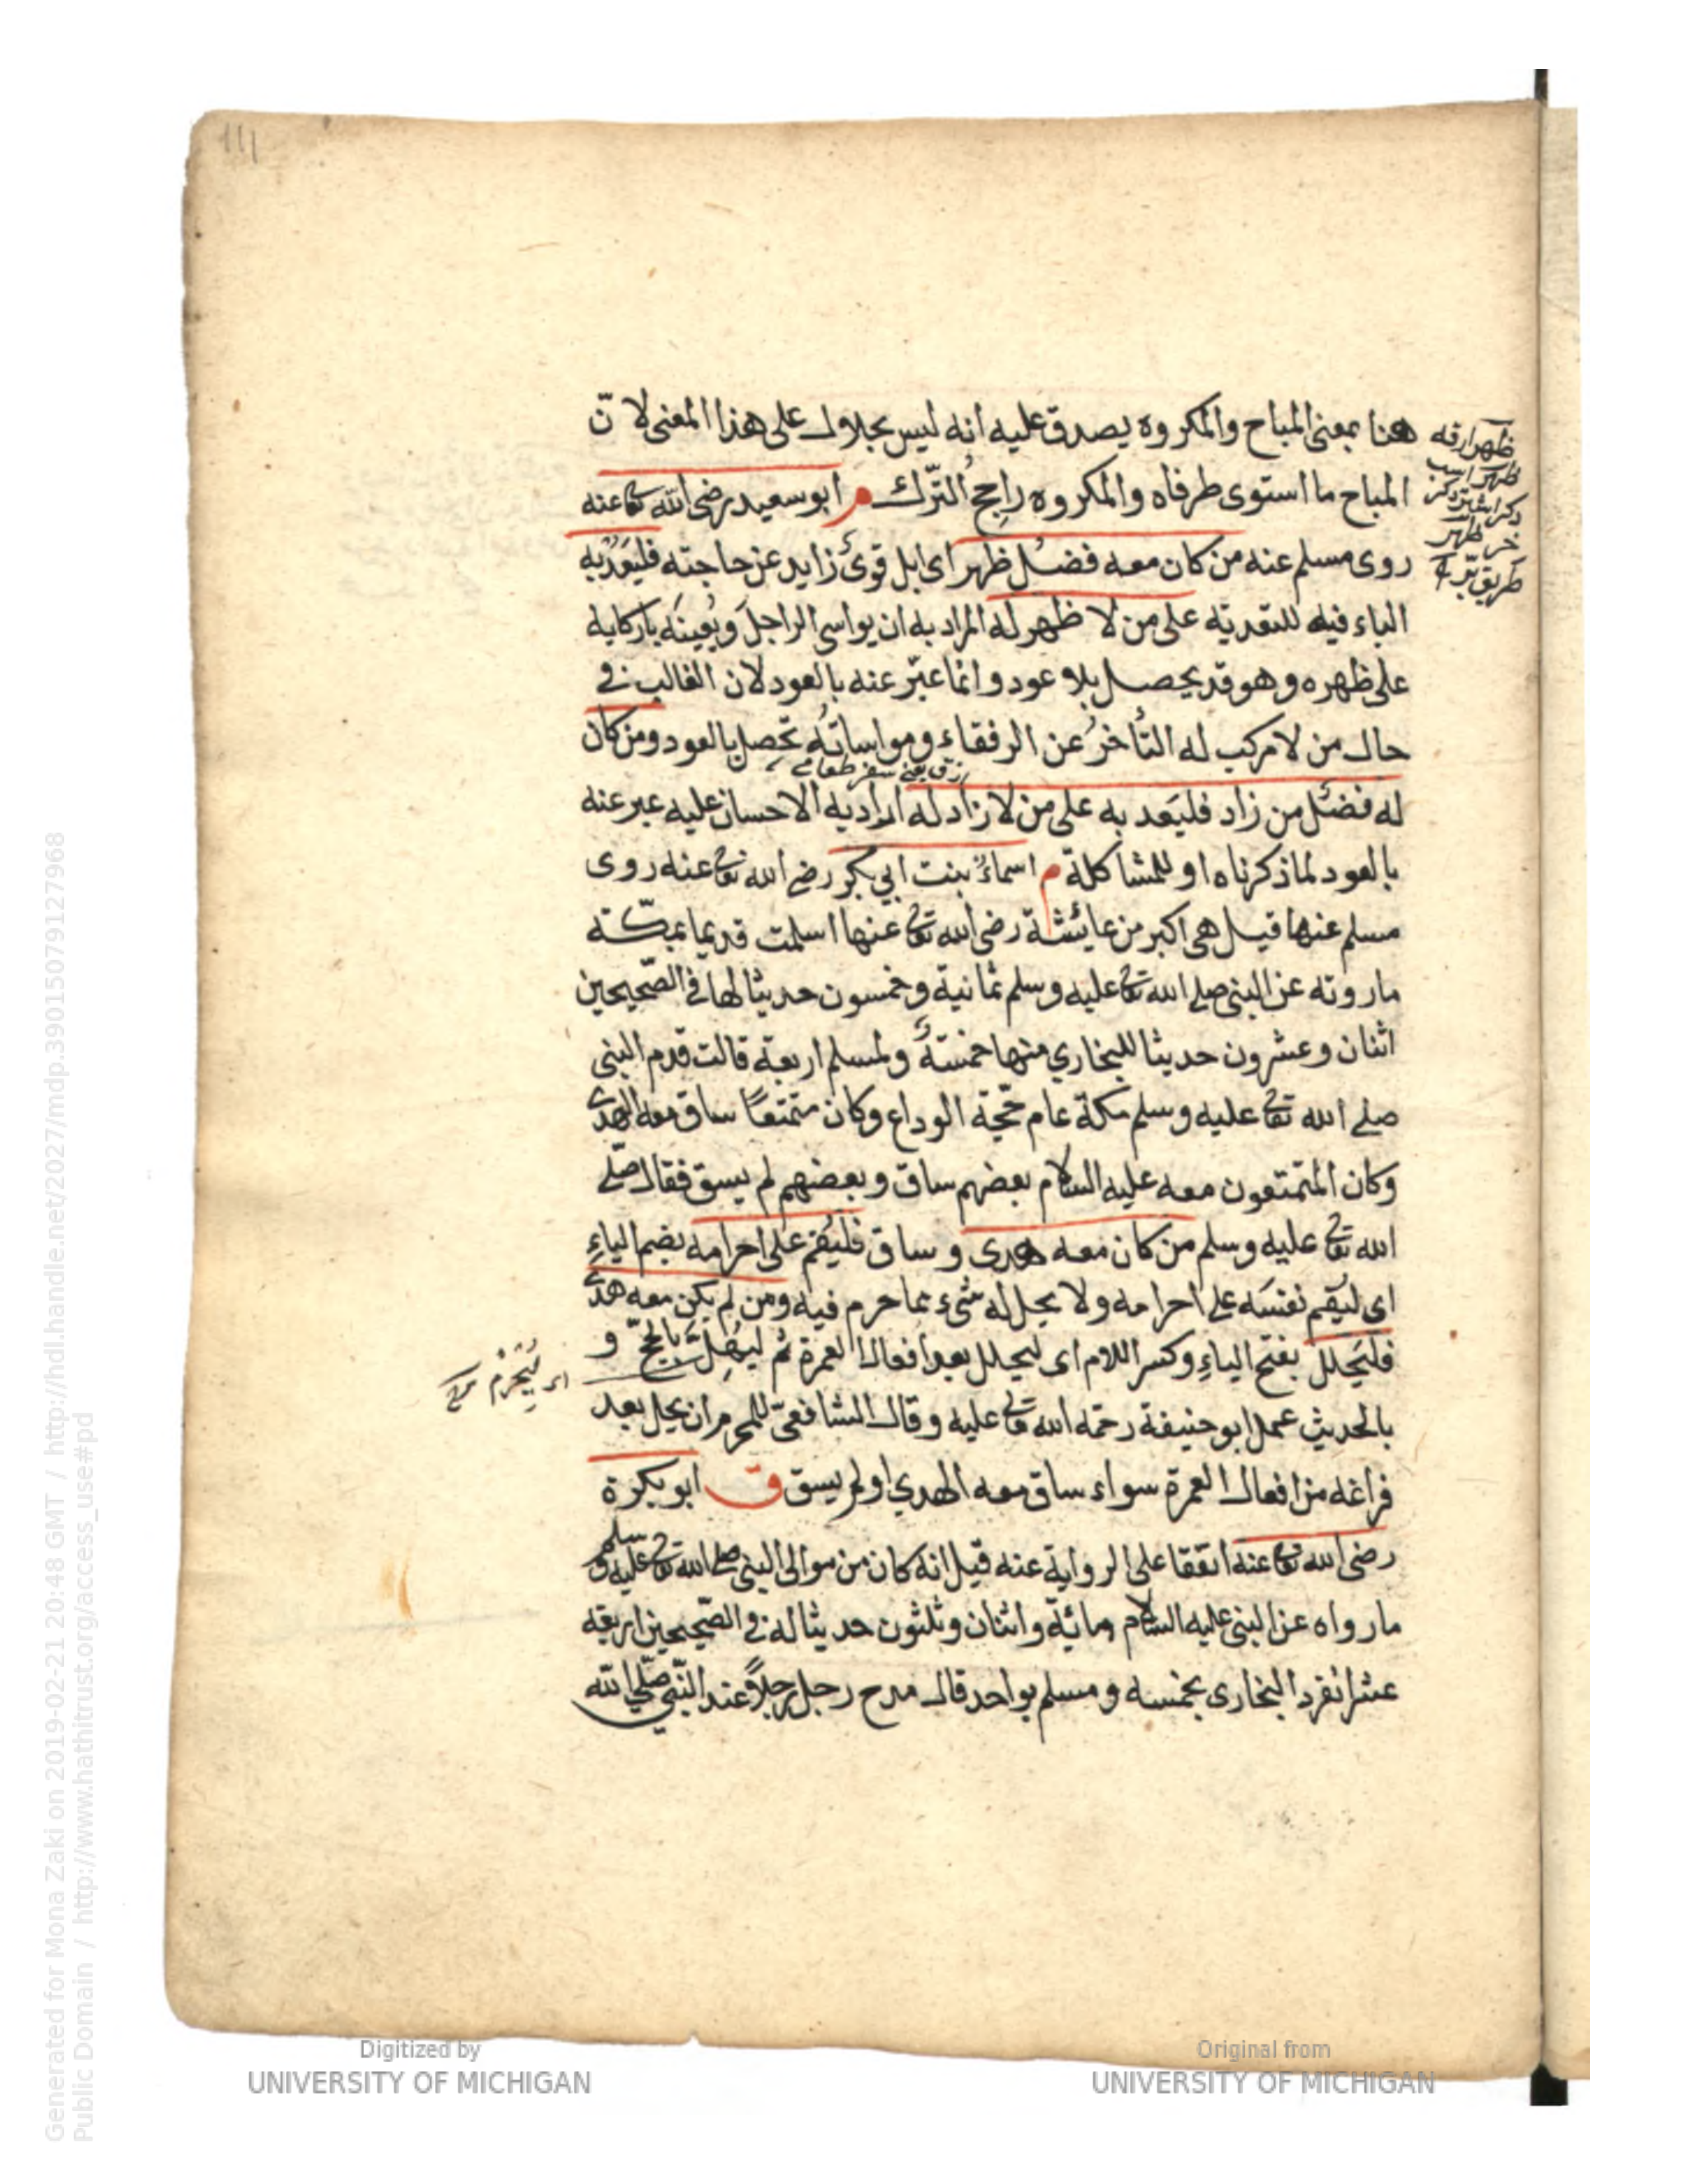 111
هنا بمعنى المباح والمكروه يصدق عليه انه ليس بحلال على هذا المعنى لانّ
المباح ما استوى طرفاه والمكروه راجح التّرك م ابو سعيد رضى الله تعا عنه
روى مسلم عنه من كان معه فضل ظهر اى ابل قوىّ زايد عن حاجته فليَعُدْ به
الباء فيه للتعدية على من لا ظهر له المراد به ان يواسى الراجلَ ويُعينَه باركابه
على ظهره وهو قد يحصل بلا عود وانما عبّر عنه بالعود لان الغالب فى
حال من لا مركب له التأخرُ عن الرفقاء ومواساتُه تحصل بالعود ومن كان
له فضل من زاد فليَعد به على من لا زاد له اراد به الاحسان عليه عبر عنه
بالعود لما ذكرناه او للمشاكلة م اسماءُ بنت ابي بكر رضى الله تعا عنه روى
مسلم عنها قيل هى اكبر من عايشة رضى الله تعا عنها اسلمت قديما بمكّة
ما روته عن النبى صلى الله تعا عليه وسلم ثمانية وخمسون حديثا لها فى الصّحيحين
اثنان وعشرون حديثا للبخاري منها خمسةٌ ولمسلم اربعة قالت قدم النبى
صلى الله تعا عليه وسلم مكة عام حجّة الوداع وكان متمتعًا ساق معه الهدى
وكان المتمتعون معه عليه السلام بعضهم ساق وبعضهم لم يسق فقال صلى
الله تعا عليه وسلم من كان معه هدى وساق فليُقم على احرامه بضم الياءِ
اى ليُقِم نفسَه على احرامه ولا يحلل له شىء مما حرم فيه ومن لم يكن معه هدى
فليَحلل بفتح الياءِ وكسر اللام اى ليحلل بعد افعال العمرة ثم ليُهِلَّ بالحجّ و
اى ليُحْرِم
بالحديث عمل ابو حنيفة رحمه الله تعا عليه وقال الشافعىّ للمحرم ان يحل بعد
فراغه من افعال العمرة سواء ساق معه الهدي او لم يسق ق ابو بكرة
رضى الله تعا عنه اتفقا على الرواية عنه قيل انه كان من موالى النبى صلى الله تعا عليه وسلم
ما رواه عن النبى عليه السلام مائة واثنان وثلثون حديثا له فى الصّحيحين اربعة
عشر انفرد البخارى بخمسه ومسلم بواحد قال مدح رجل رجلاً عند النّبى صلّى الله
Digitized by
UNIVERSITY OF MICHIGAN
Original from
UNIVERSITY OF MICHIGAN
Generated for Mona Zaki on 2019-02-21 20:48 GMT / http://hdl.handle.net/2027/mdp.39015079127968
Public Domain / http://www.hathitrust.org/access_use#pd